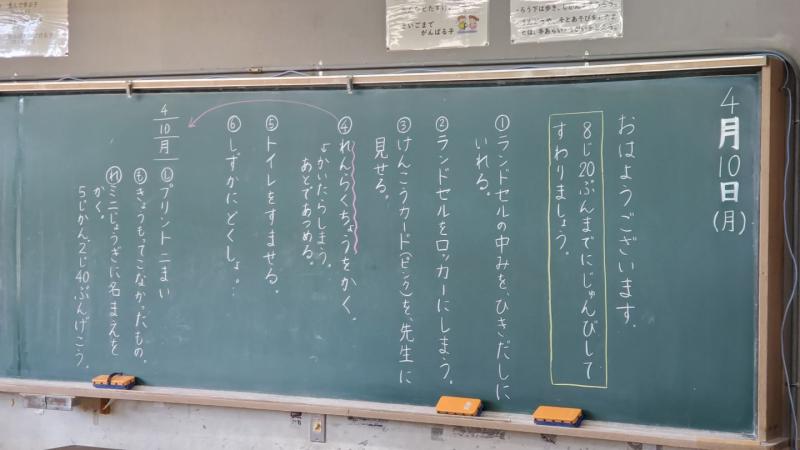 4月10日(月)
おはようございます。
8じ20ぷんまでにじゅんびして
すわりましょう。
①ランドセルの中みを、ひきだしに
いれる。
②ランドセルをロッカーにしまう。
③けんこうカード(ピンク)を、先生に
見せる。
④れんらくちょうをかく。
かいたらしまう。
あとであつめる。
⑤トイレをすませる。
⑥しずかにどくしょ。
4
10
月
し プリント二まい
も きょうもってこなかったもの。
れ ミニじょうぎに名まえを
かく。
5じかん、2じ40ぷんげこう。
さいごまで
がんばる子